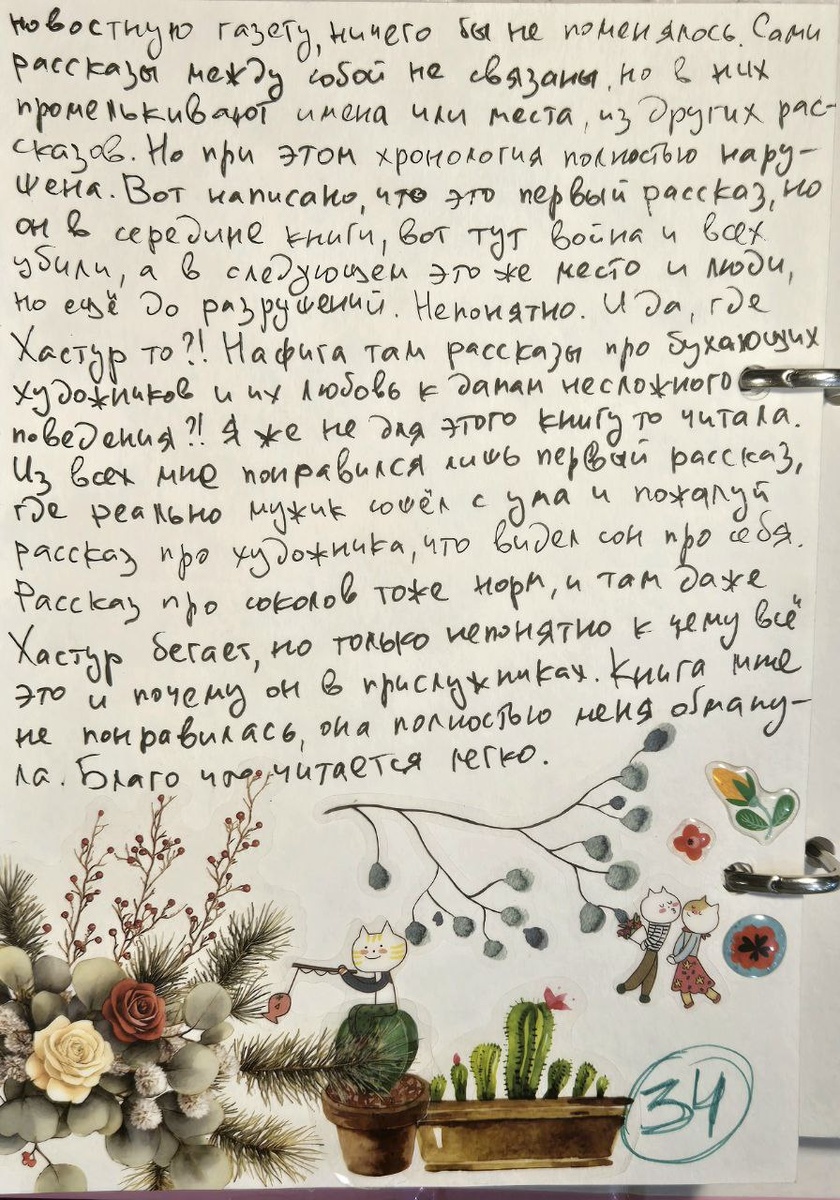 новостную газету, ничего бы не поменялось. Сами
рассказы между собой не связаны, но в них
промелькивают имена или места, из других рас-
сказов. Но при этом хронология полностью нару-
шена. Вот написано, что это первый рассказ, но
он в середине книги, вот тут война и всех
убили, а в следующем это же место и люди,
но ещё до разрушений. Непонятно. И да, где
Хастур то?! Нафига там рассказы про бухающих
художников и их любовь к дамам несложного
поведения?! Я же не для этого книгу то читала.
Из всех мне понравился лишь первый рассказ,
где реально мужик сошёл с ума и пожалуй
рассказ про художника, что видел сон про себя.
Рассказ про соколов тоже норм, и там даже
Хастур бегает, но только непонятно к чему всё
это и почему он в прислужниках. Книга мне
не понравилась, она полностью меня обману-
ла. Благо что читается легко.
34